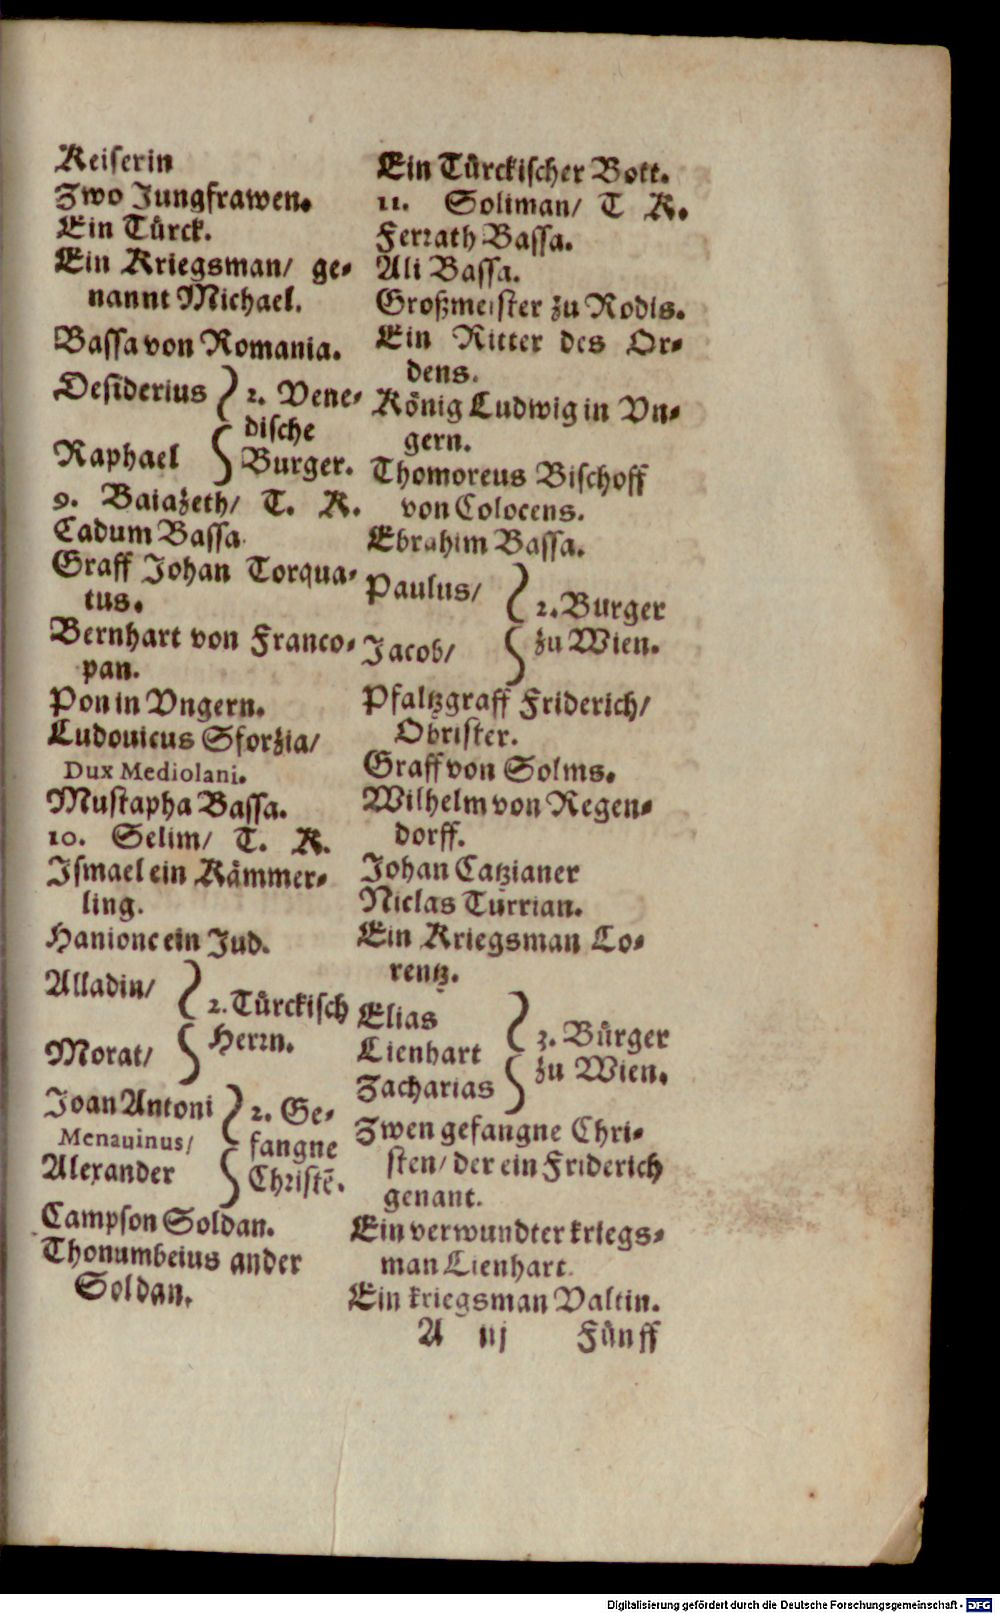 Keiserin
Zwo Jungfrawen.
Ein Türck.
Ein Kriegsman/ ge-
nannt Michael.
Bassa von Romania.
Desiderius } 2. Vene-
dische
Raphael } Burger.
9. Baiazeth/ T. K.
Cadum Bassa
Graff Johan Torqua-
tus.
Bernhart von Franco-
pan.
Pon in Vngern.
Ludouicus Sforzia/
Dux Mediolani.
Mustapha Bassa.
10. Selim/ T. K.
Ismael ein Kämmer-
ling.
Hanionc ein Jud.
Alladin/
} 2. Türckisch
Morat/ } Herrn.
Joan Antoni } 2. Ge-
Menauinus/ fangne
Alexander } Christē.
Campson Soldan.
Thonumbeius ander
Soldan.
Ein Türckischer Bott.
11. Soliman/ T K.
Ferrath Bassa.
Ali Bassa.
Großmeister zu Rodis.
Ein Ritter des Or-
dens.
König Ludwig in Vn-
gern.
Thomoreus Bischoff
von Colocens.
Ebrahim Bassa.
Paulus/ } 2. Burger
Jacob/ } zu Wien.
Pfaltzgraff Friderich/
Obrister.
Graff von Solms.
Wilhelm von Regen-
dorff.
Johan Catzianer
Niclas Turrian.
Ein Kriegsman Lo-
rentz.
Elias } 3. Bürger
Lienhart
Zacharias } zu Wien.
Zwen gefangne Chri-
sten/ der ein Friderich
genant.
Ein verwundter kriegs-
man Lienhart.
Ein kriegsman Valtin.
A iij Fünff
Digitalisierung gefördert durch die Deutsche Forschungsgemeinschaft - DFG